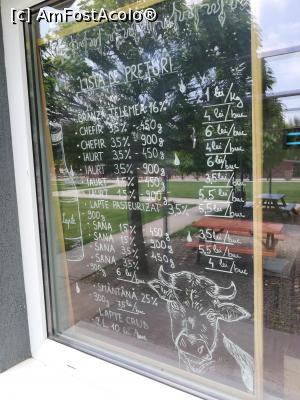 [c] AmFostAcolo®
LISTA DE PREȚURI
BRÂNZĂ TELEMEA 16%
1 lei/kg
• CHEFIR 3.5% - 450g
4 lei/buc
• CHEFIR 3.5% - 900g
6 lei/buc
• IAURT 3.5% - 450g
4 lei/buc
• IAURT 3.5% - 900g
6 lei/buc
• IAURT 1.5% - 450g
3.5 lei/buc
• IAURT 1.5% - 900g
5.5 lei/buc
• LAPTE PASTEURIZAT 3.5%
900g
5.5 lei/buc
• SANA 1.5% - 450g
3.5 lei/buc
• SANA 1.5% - 900g
5.5 lei/buc
• SANA 3.5%
4 lei/buc
• SANA 3.5%
900g
6 lei/buc
• SMÂNTÂNĂ 25%
300g
3.5 lei/buc
• LAPTE CRUD
2 L 10 lei/buc
Lapte